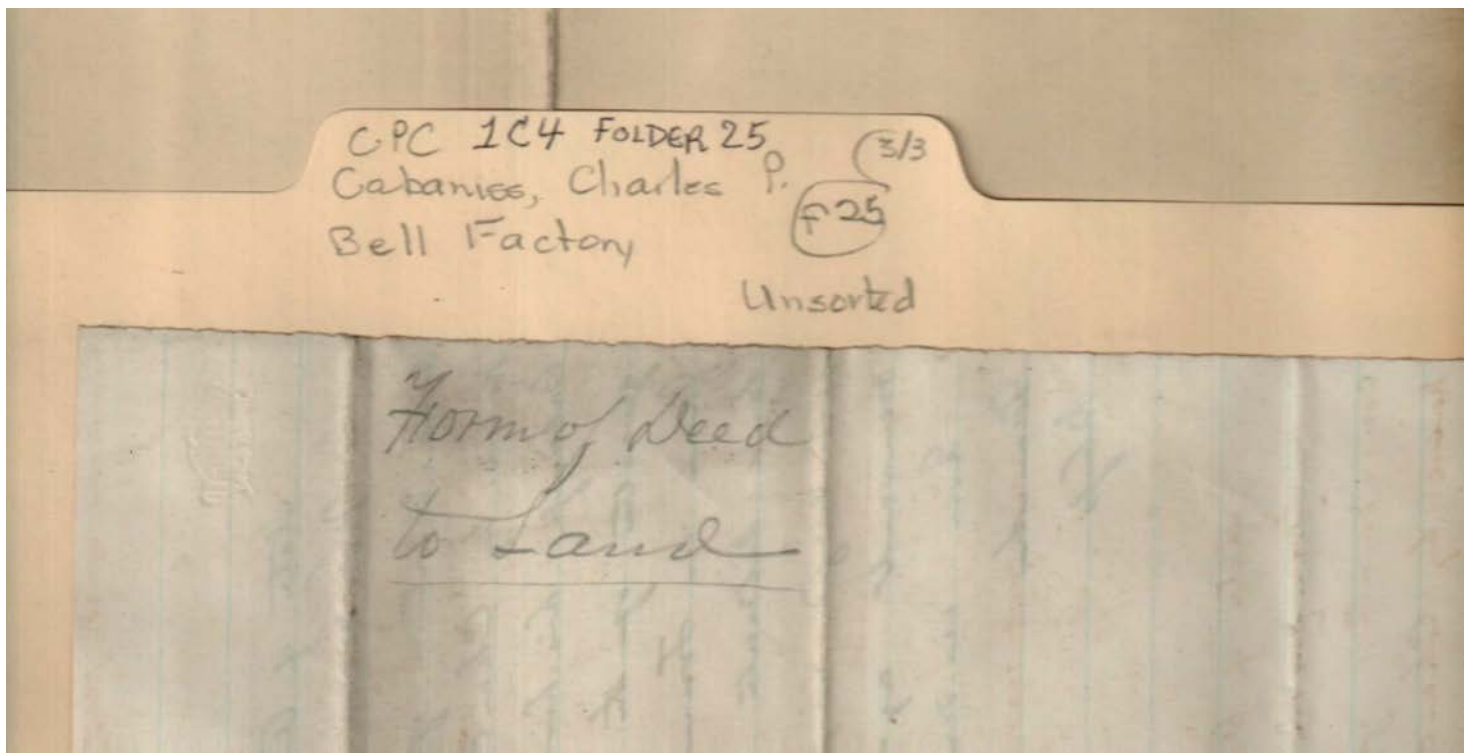 CPC 1C4 FOLDER 25
3/3
Cabaniss, Charles P.
F25
Bell Factory
Unsorted
Form of Deed
to Land